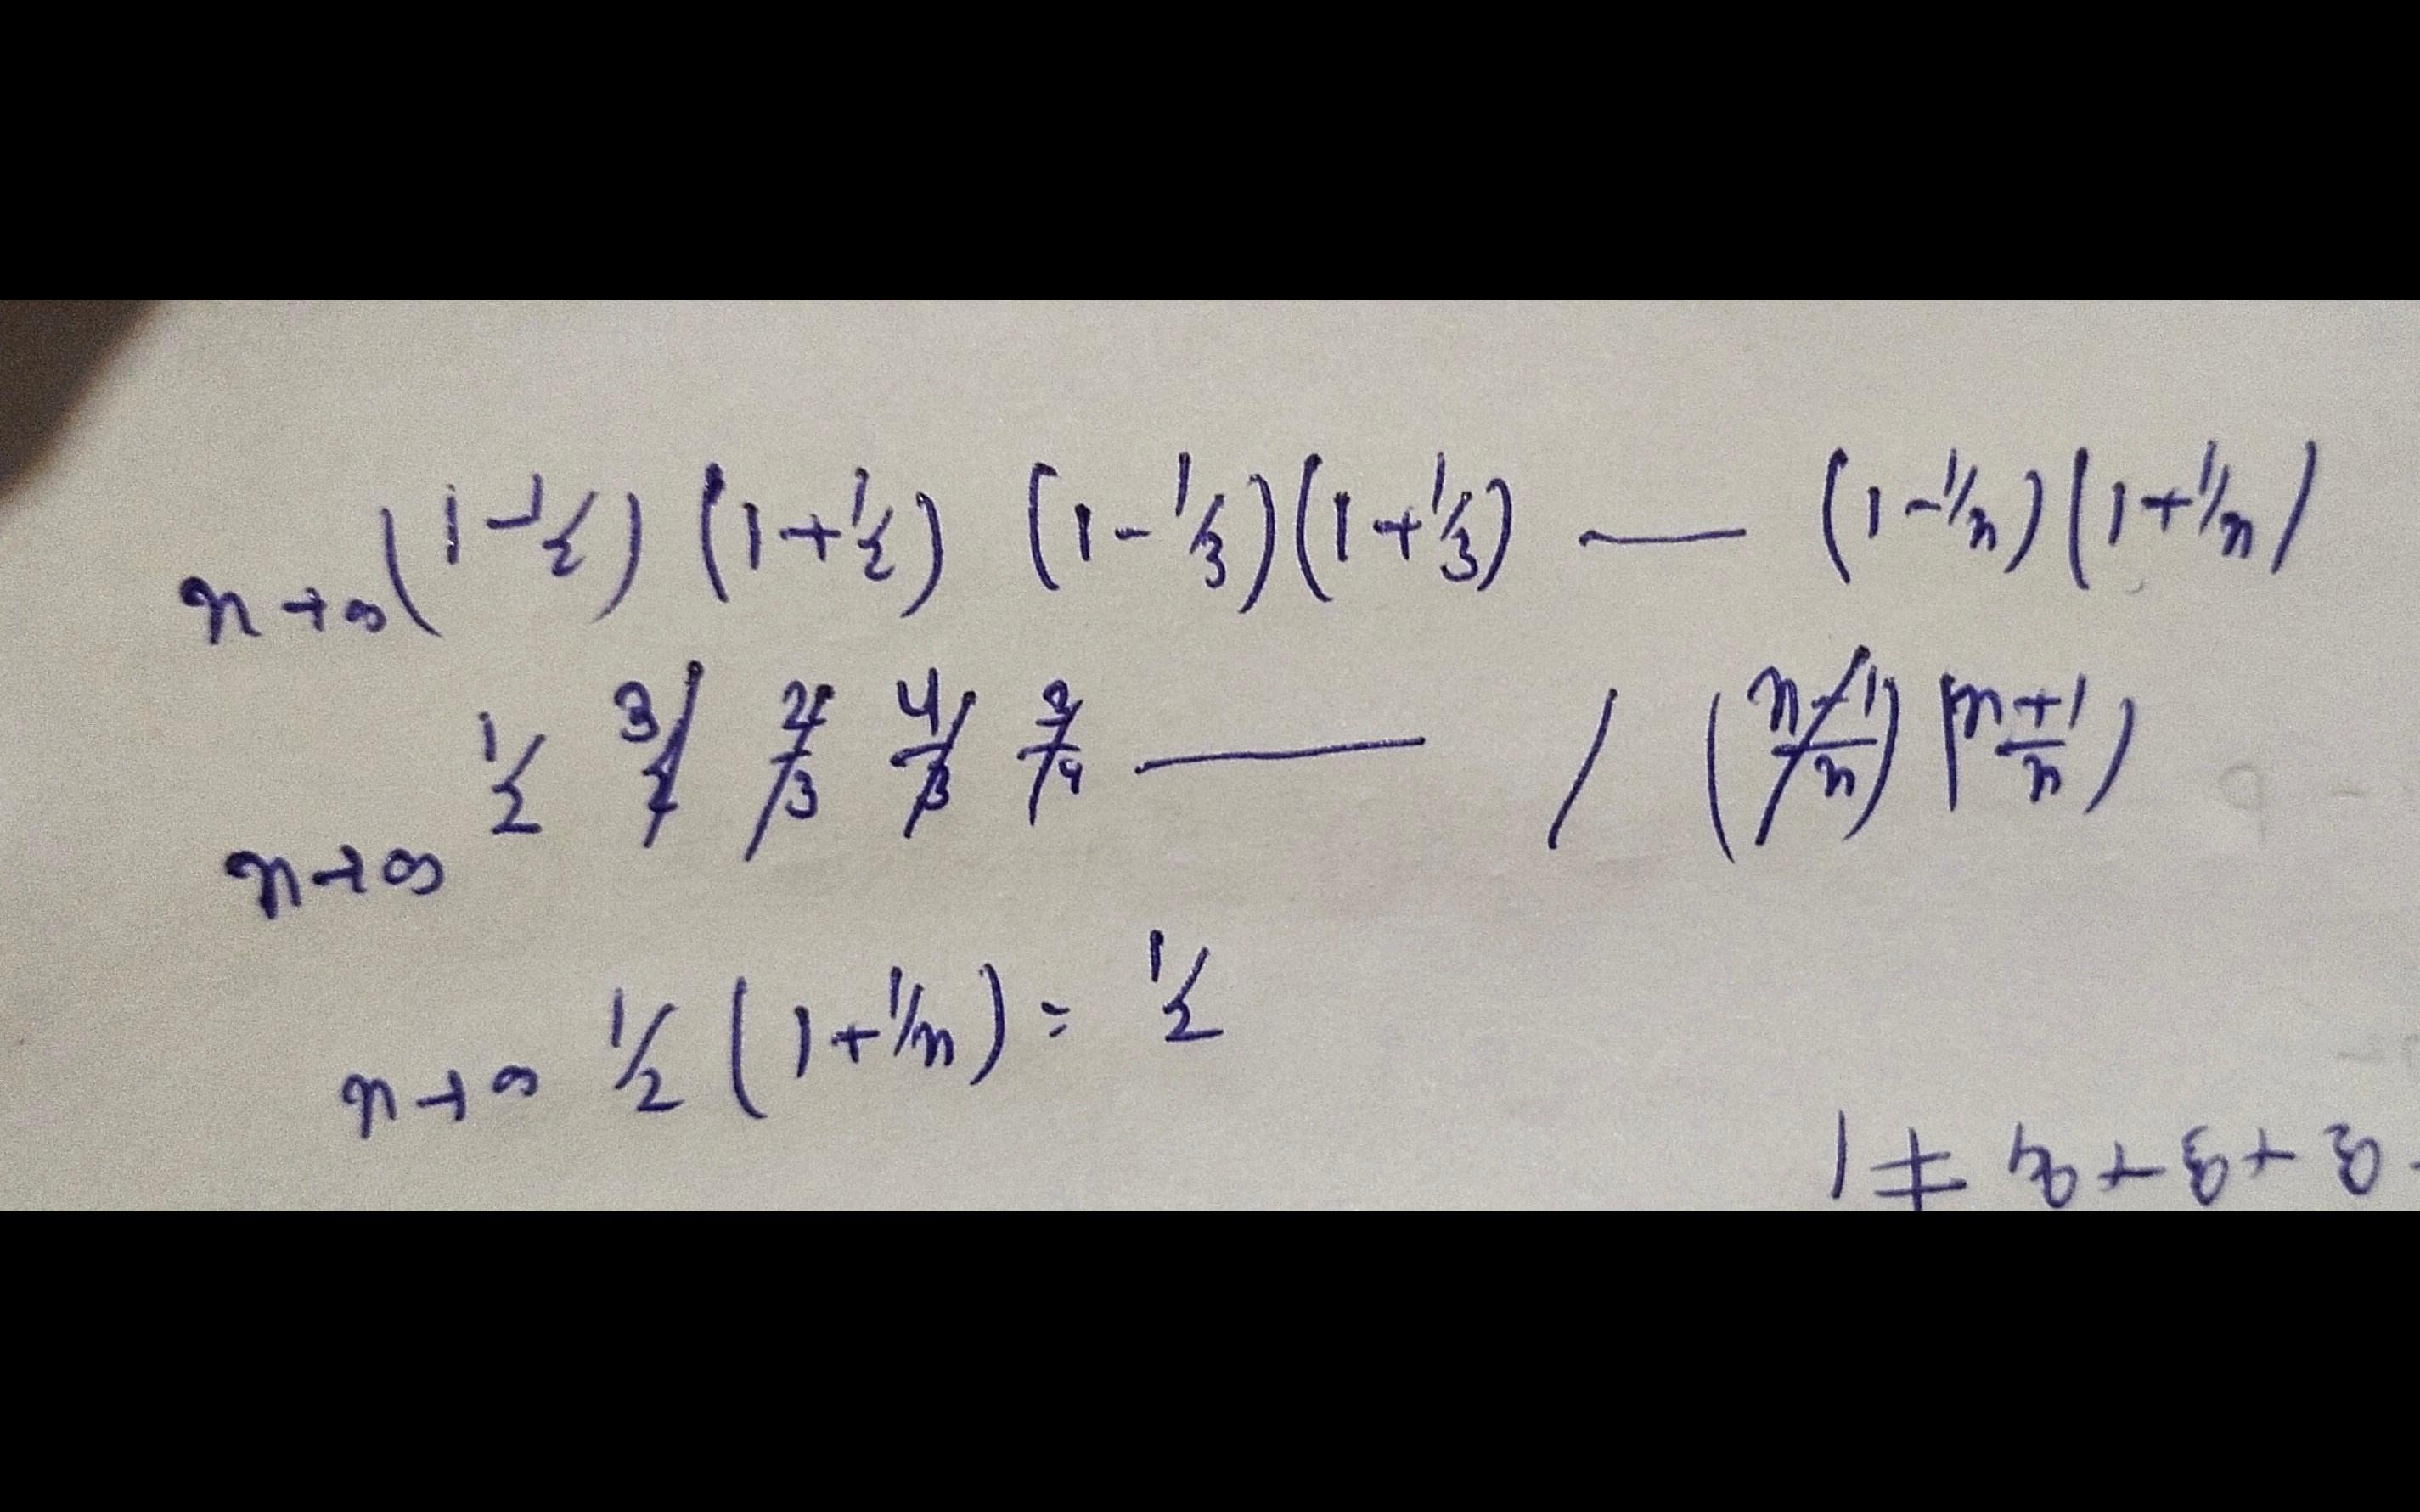 n→∞ (1-1/2) (1+1/2) (1-1/3)(1+1/3) — (1-1/n)(1+1/n)
n→∞ 1/2 3/2 2/3 4/3 3/4 — / (n-1/n) (n+1/n)
n→∞ 1/2 (1+1/n) = 1/2